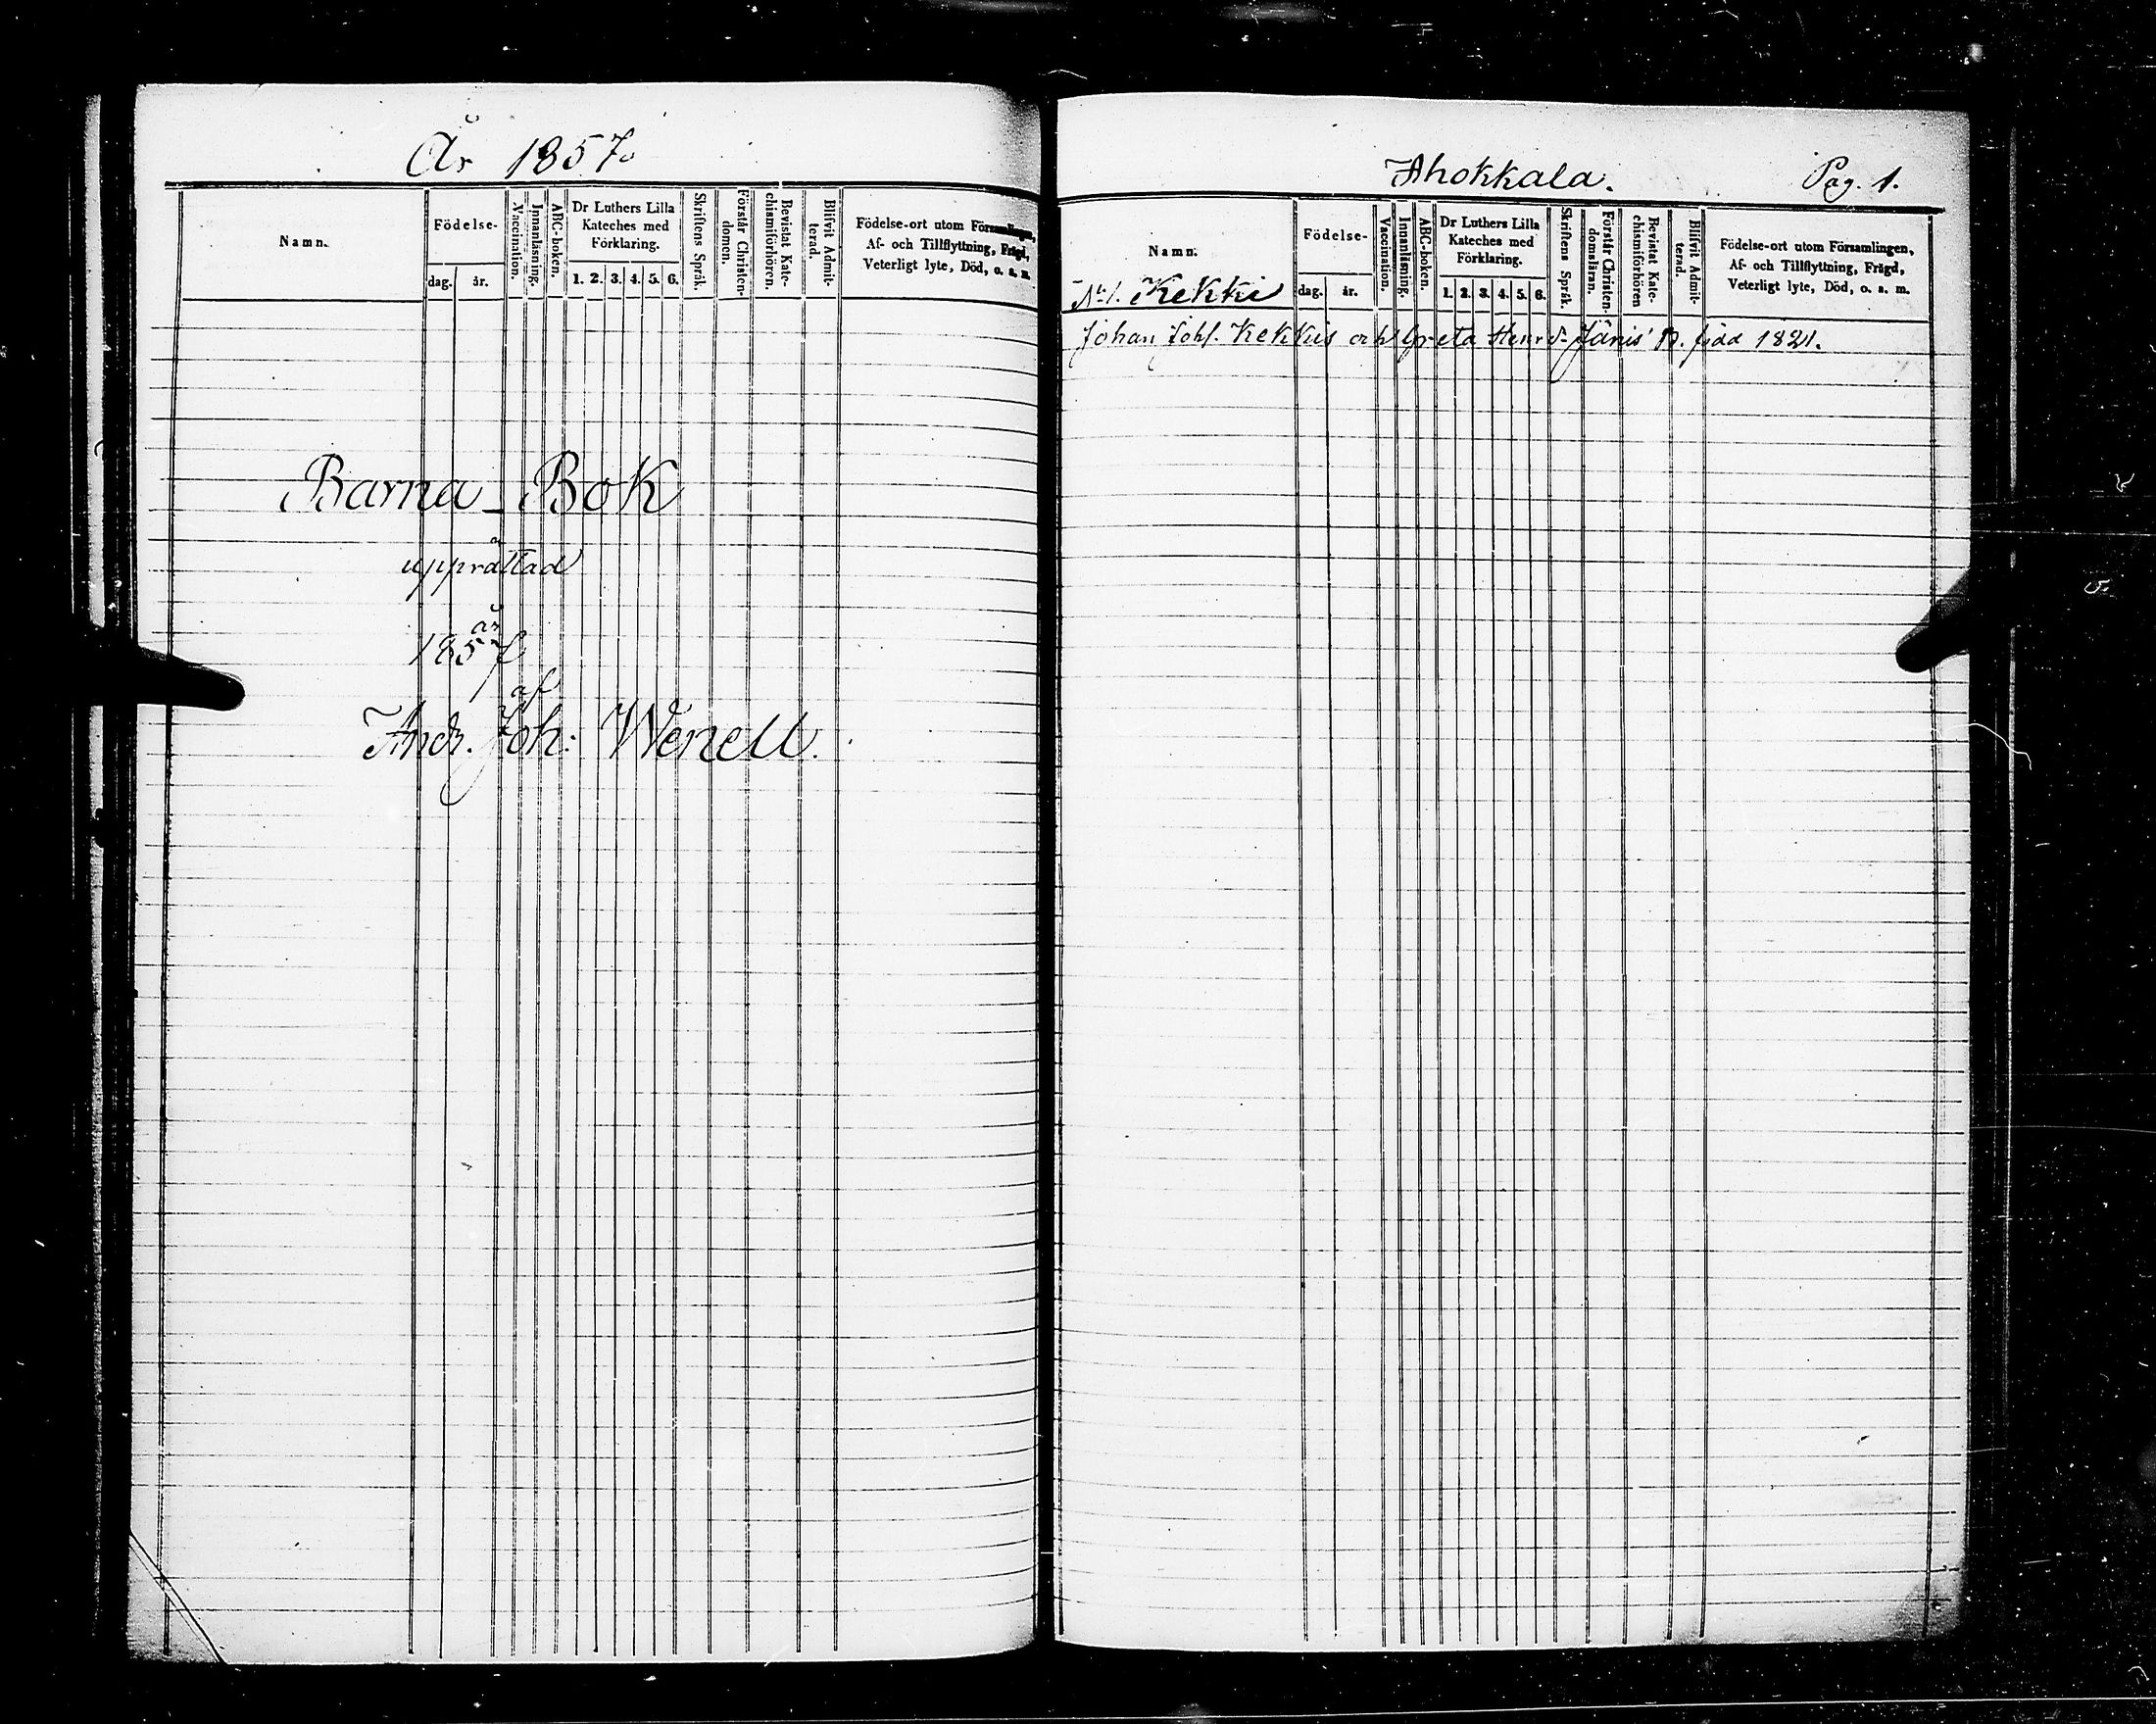 År 1857.
Namn.
Födelse-
dag.
år.
Vaccination.
Innanläsning.
ABC-boken.
Dr Luthers Lilla
Kateches med
Förklaring.
1. 2. 3. 4. 5. 6.
Skriftens Språk.
Förstår Christen-
domen.
Bevistat Kate-
chismiförhören.
Blifvit Admit-
terad.
Födelse-ort utom Församlingen,
Af- och Tillflyttning, Frägd,
Veterligt lyte, Död, o. s. m.
Barna-Bok
upprättad
år
1857
af
Andr. Joh: Wenell.
Ahokkala.
Pag. 1.
Namn.
Födelse-
dag.
år.
Vaccination.
Innanläsning.
ABC-boken.
Dr Luthers Lilla
Kateches med
Förklaring.
1. 2. 3. 4. 5. 6.
Skriftens Språk.
Förstår Christen-
domsläran.
Bevistat Kate-
chismiförhören
Blifvit Admit-
terad.
Födelse-ort utom Församlingen,
Af- och Tillflyttning, Frägd,
Veterligt lyte, Död, o. s. m.
No 1. Kekki
Johan Johs. Kekkis och Greta Henrd. Jänis' n. född 1821.